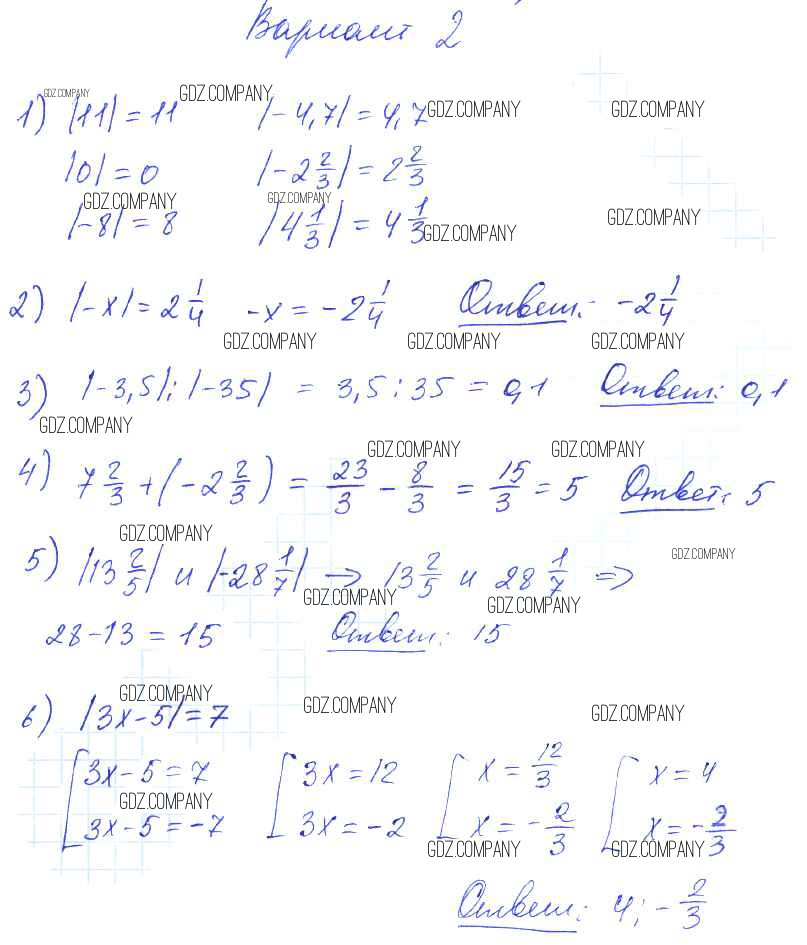 Вариант 2
GDZ.COMPANY GDZ.COMPANY
1) |11| = 11 |-4,7| = 4,7 GDZ.COMPANY GDZ.COMPANY
|0| = 0 |-2 2/3| = 2 2/3
GDZ.COMPANY GDZ.COMPANY GDZ.COMPANY
|-8| = 8 |4 1/3| = 4 1/3 GDZ.COMPANY
2) |-x| = 2 1/4 -x = -2 1/4 Ответ: -2 1/4
GDZ.COMPANY GDZ.COMPANY GDZ.COMPANY
3) |-3,5| : |-35| = 3,5 : 35 = 0,1 Ответ: 0,1
GDZ.COMPANY GDZ.COMPANY GDZ.COMPANY
4) 7 2/3 + (-2 2/3) = 23/3 - 8/3 = 15/3 = 5 Ответ: 5
GDZ.COMPANY GDZ.COMPANY
5) |13 2/5| и |-28 1/7| → 13 2/5 и 28 1/7 ⇒
GDZ.COMPANY GDZ.COMPANY
28 - 13 = 15 Ответ: 15
GDZ.COMPANY GDZ.COMPANY GDZ.COMPANY
6) |3x - 5| = 7
[ 3x - 5 = 7 [ 3x = 12 [ x = 12/3 [ x = 4
GDZ.COMPANY
3x - 5 = -7 3x = -2 x = -2/3 x = -2/3
GDZ.COMPANY GDZ.COMPANY
Ответ: 4; -2/3